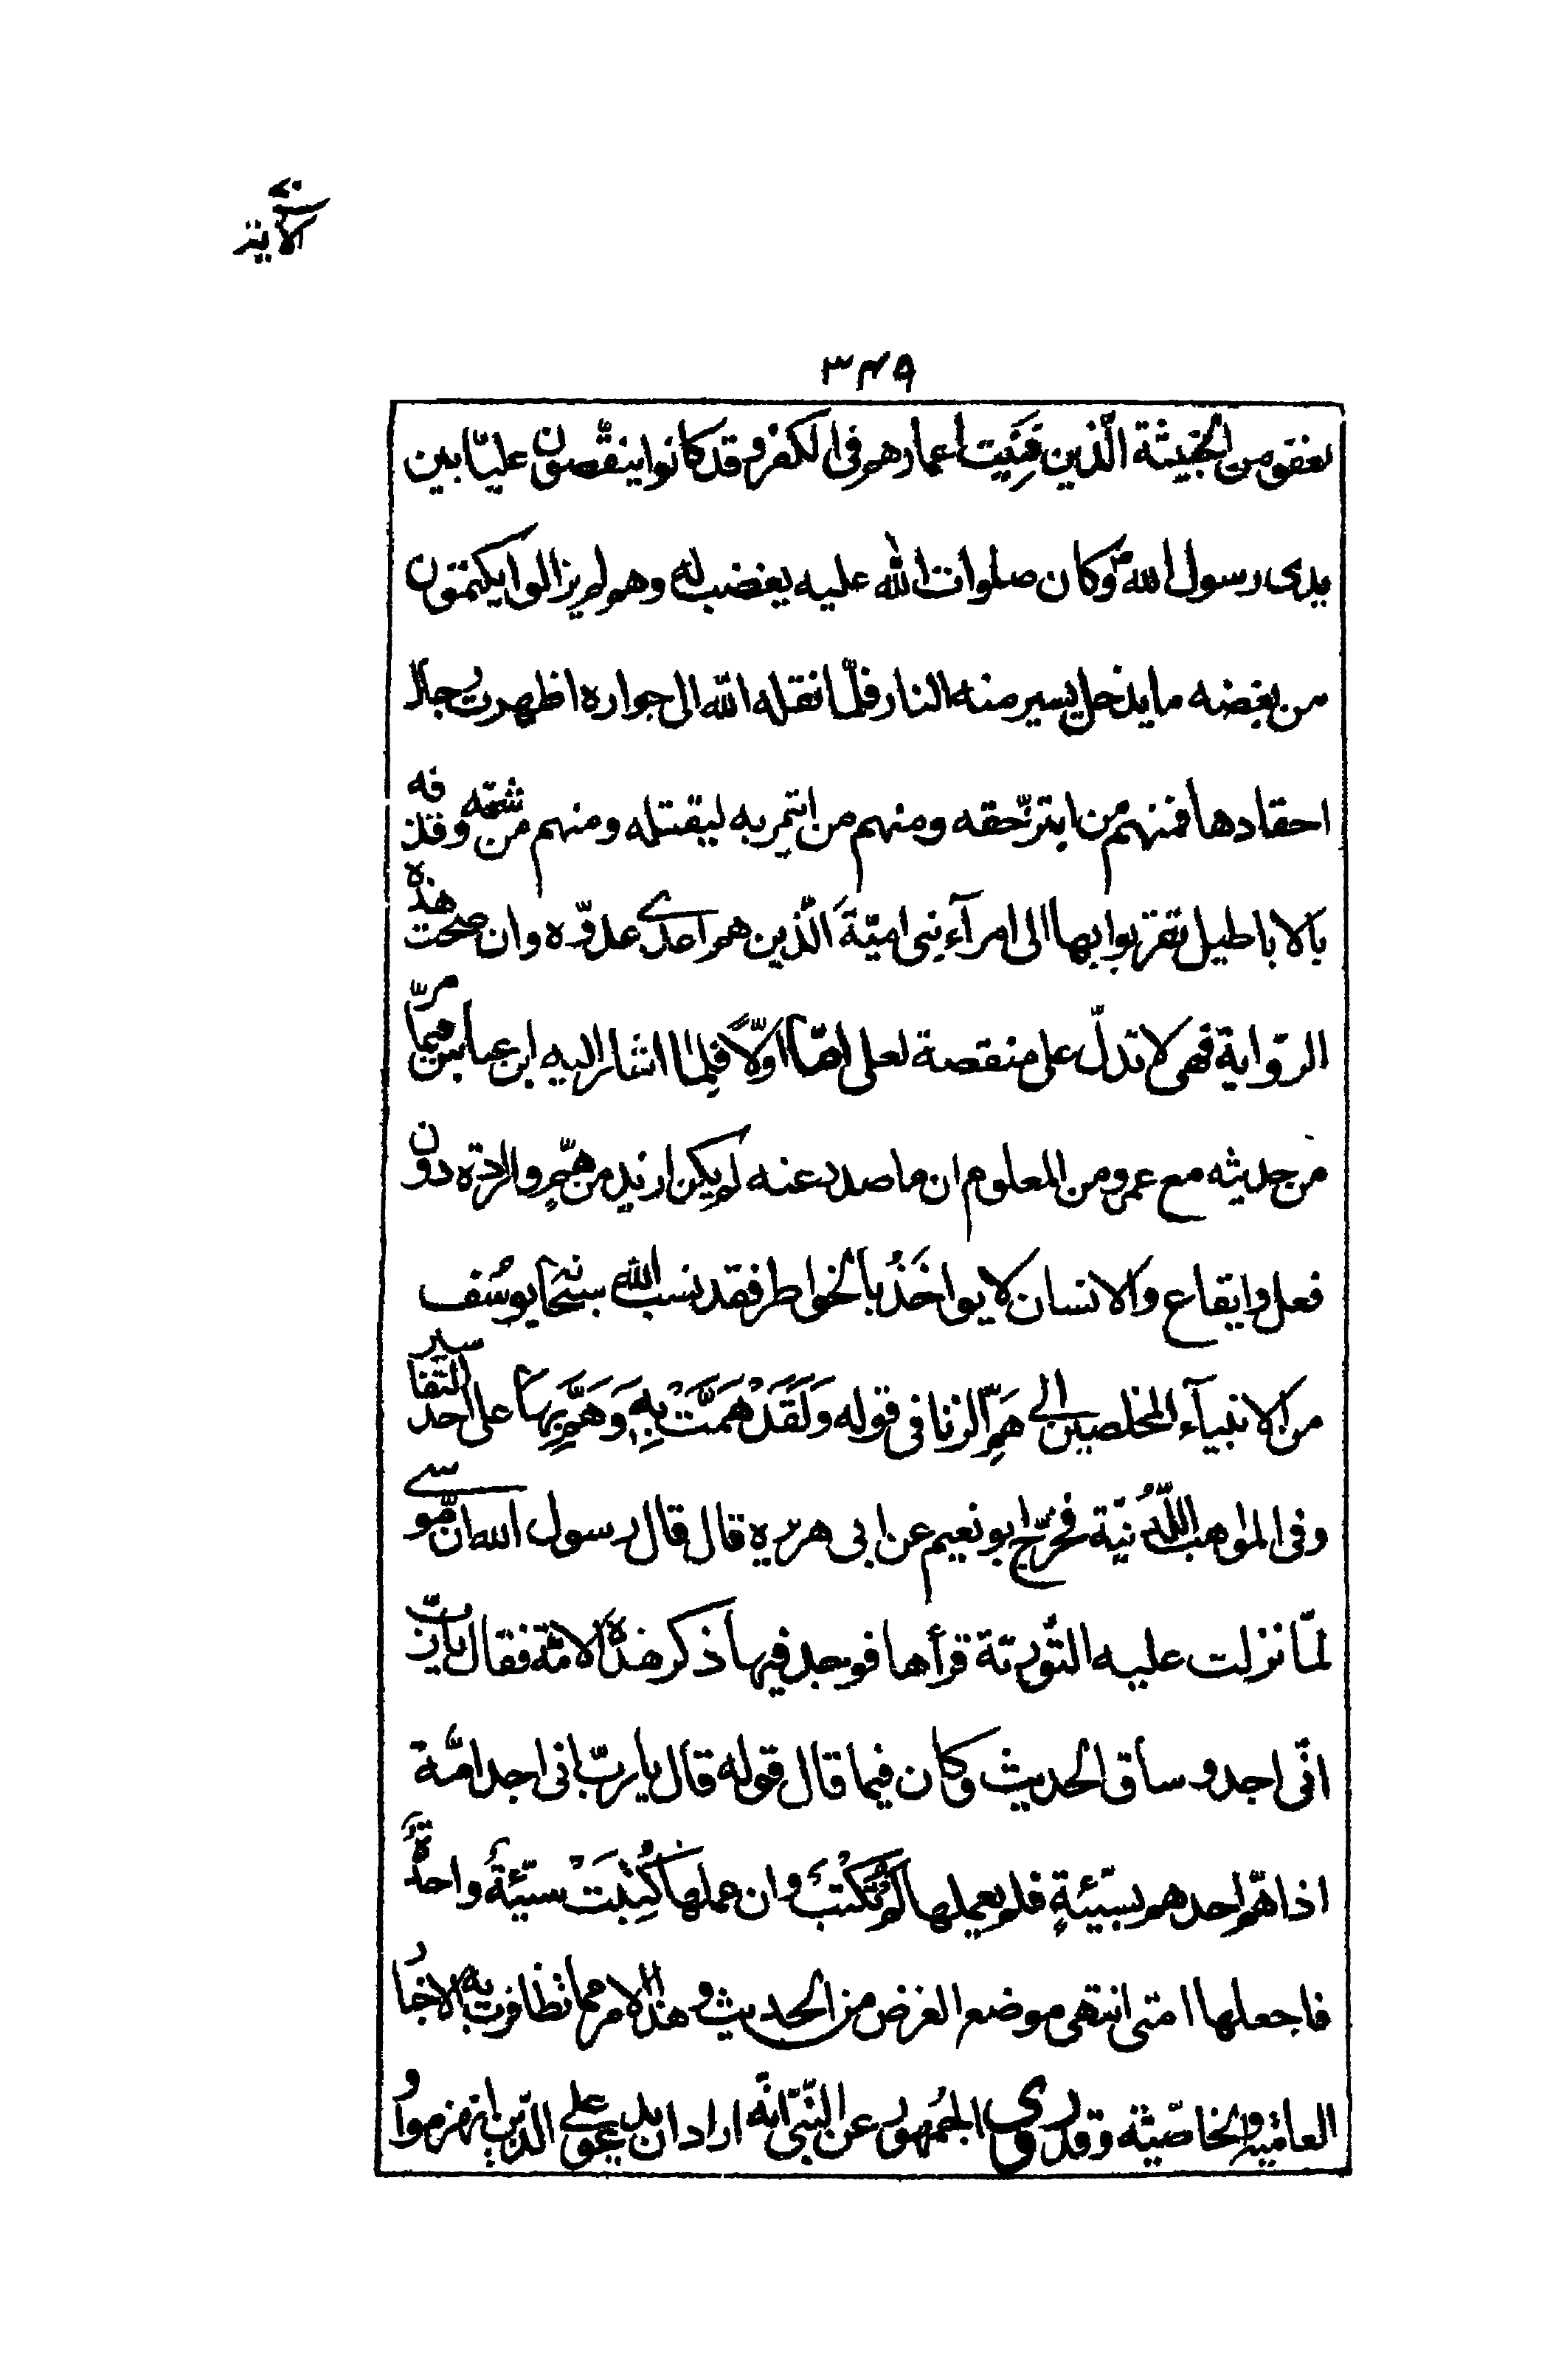 في الآية
٣٤٥
من الخبيثة الّذين فَنِيَت اعمارهم فى الكفر و قد كانوا ينقّصون عليّا بين
يدى رسول اللّه ص وكان صلوات اللّه عليه يغضب له وهم لم يزالوا يكتمون
من بغضه ما يدخل يسير منه النار فلمّا نقله اللّه الى جواره اظهرت رجال
احقادها فمنهم من ابتزّ حقه ومنهم من ائتمر به ليقتله ومنهم من شتمه وقذفه
بالاباطيل تقرّبوا بها الى امرآء بنى اميّة الّذين هم اعدى عدوّه وان صحّت هذه
الرّواية فهى لا تدلّ على منقصة لعلى امّا اوّلاً فلما اشار اليه ابن عباس فيما مرّ
من حديثه مع عمر ومن المعلوم ان ما صدر عنه لم يكن ازيد من همّ وارادة دون
فعل وايقاع والانسان لا يواخَذُ بالخواطر فقد نسب اللّه سبحا يوسُف
من الانبيآء المخلصين الى هَمّ الزنا فى قوله وَلَقَدْ هَمَّتْ بِهِ وَهَمَّ بِهَا على احد التفاسير
وفى المواهب اللّدُنيّة فخرّج ابو نعيم عن ابى هريره قال قال رسول اللّه ان موسى
لمّا نزلت عليه التّورية قرأها فوجد فيها ذكر هذه الامّة فقال يا ربّ
انّى اجد و ساق الحديث وكان فيما قال قوله قال يا ربّ انى اجد امّة
اذا همّ احدهم بسيّئةٍ فلم يعملها لَم تُكْتَب وان عملها كُتِبَتْ سيّئةً واحدةً
فاجعلها امتى انتهى موضع الغرض من الحديث و هذا الامر مما تظافرت به الاخبار
العاميّة والخاصّيّة وقد روى الجمُهور عن النّبىّ انّه اراد ان يدعو على الّذين انهزموا و